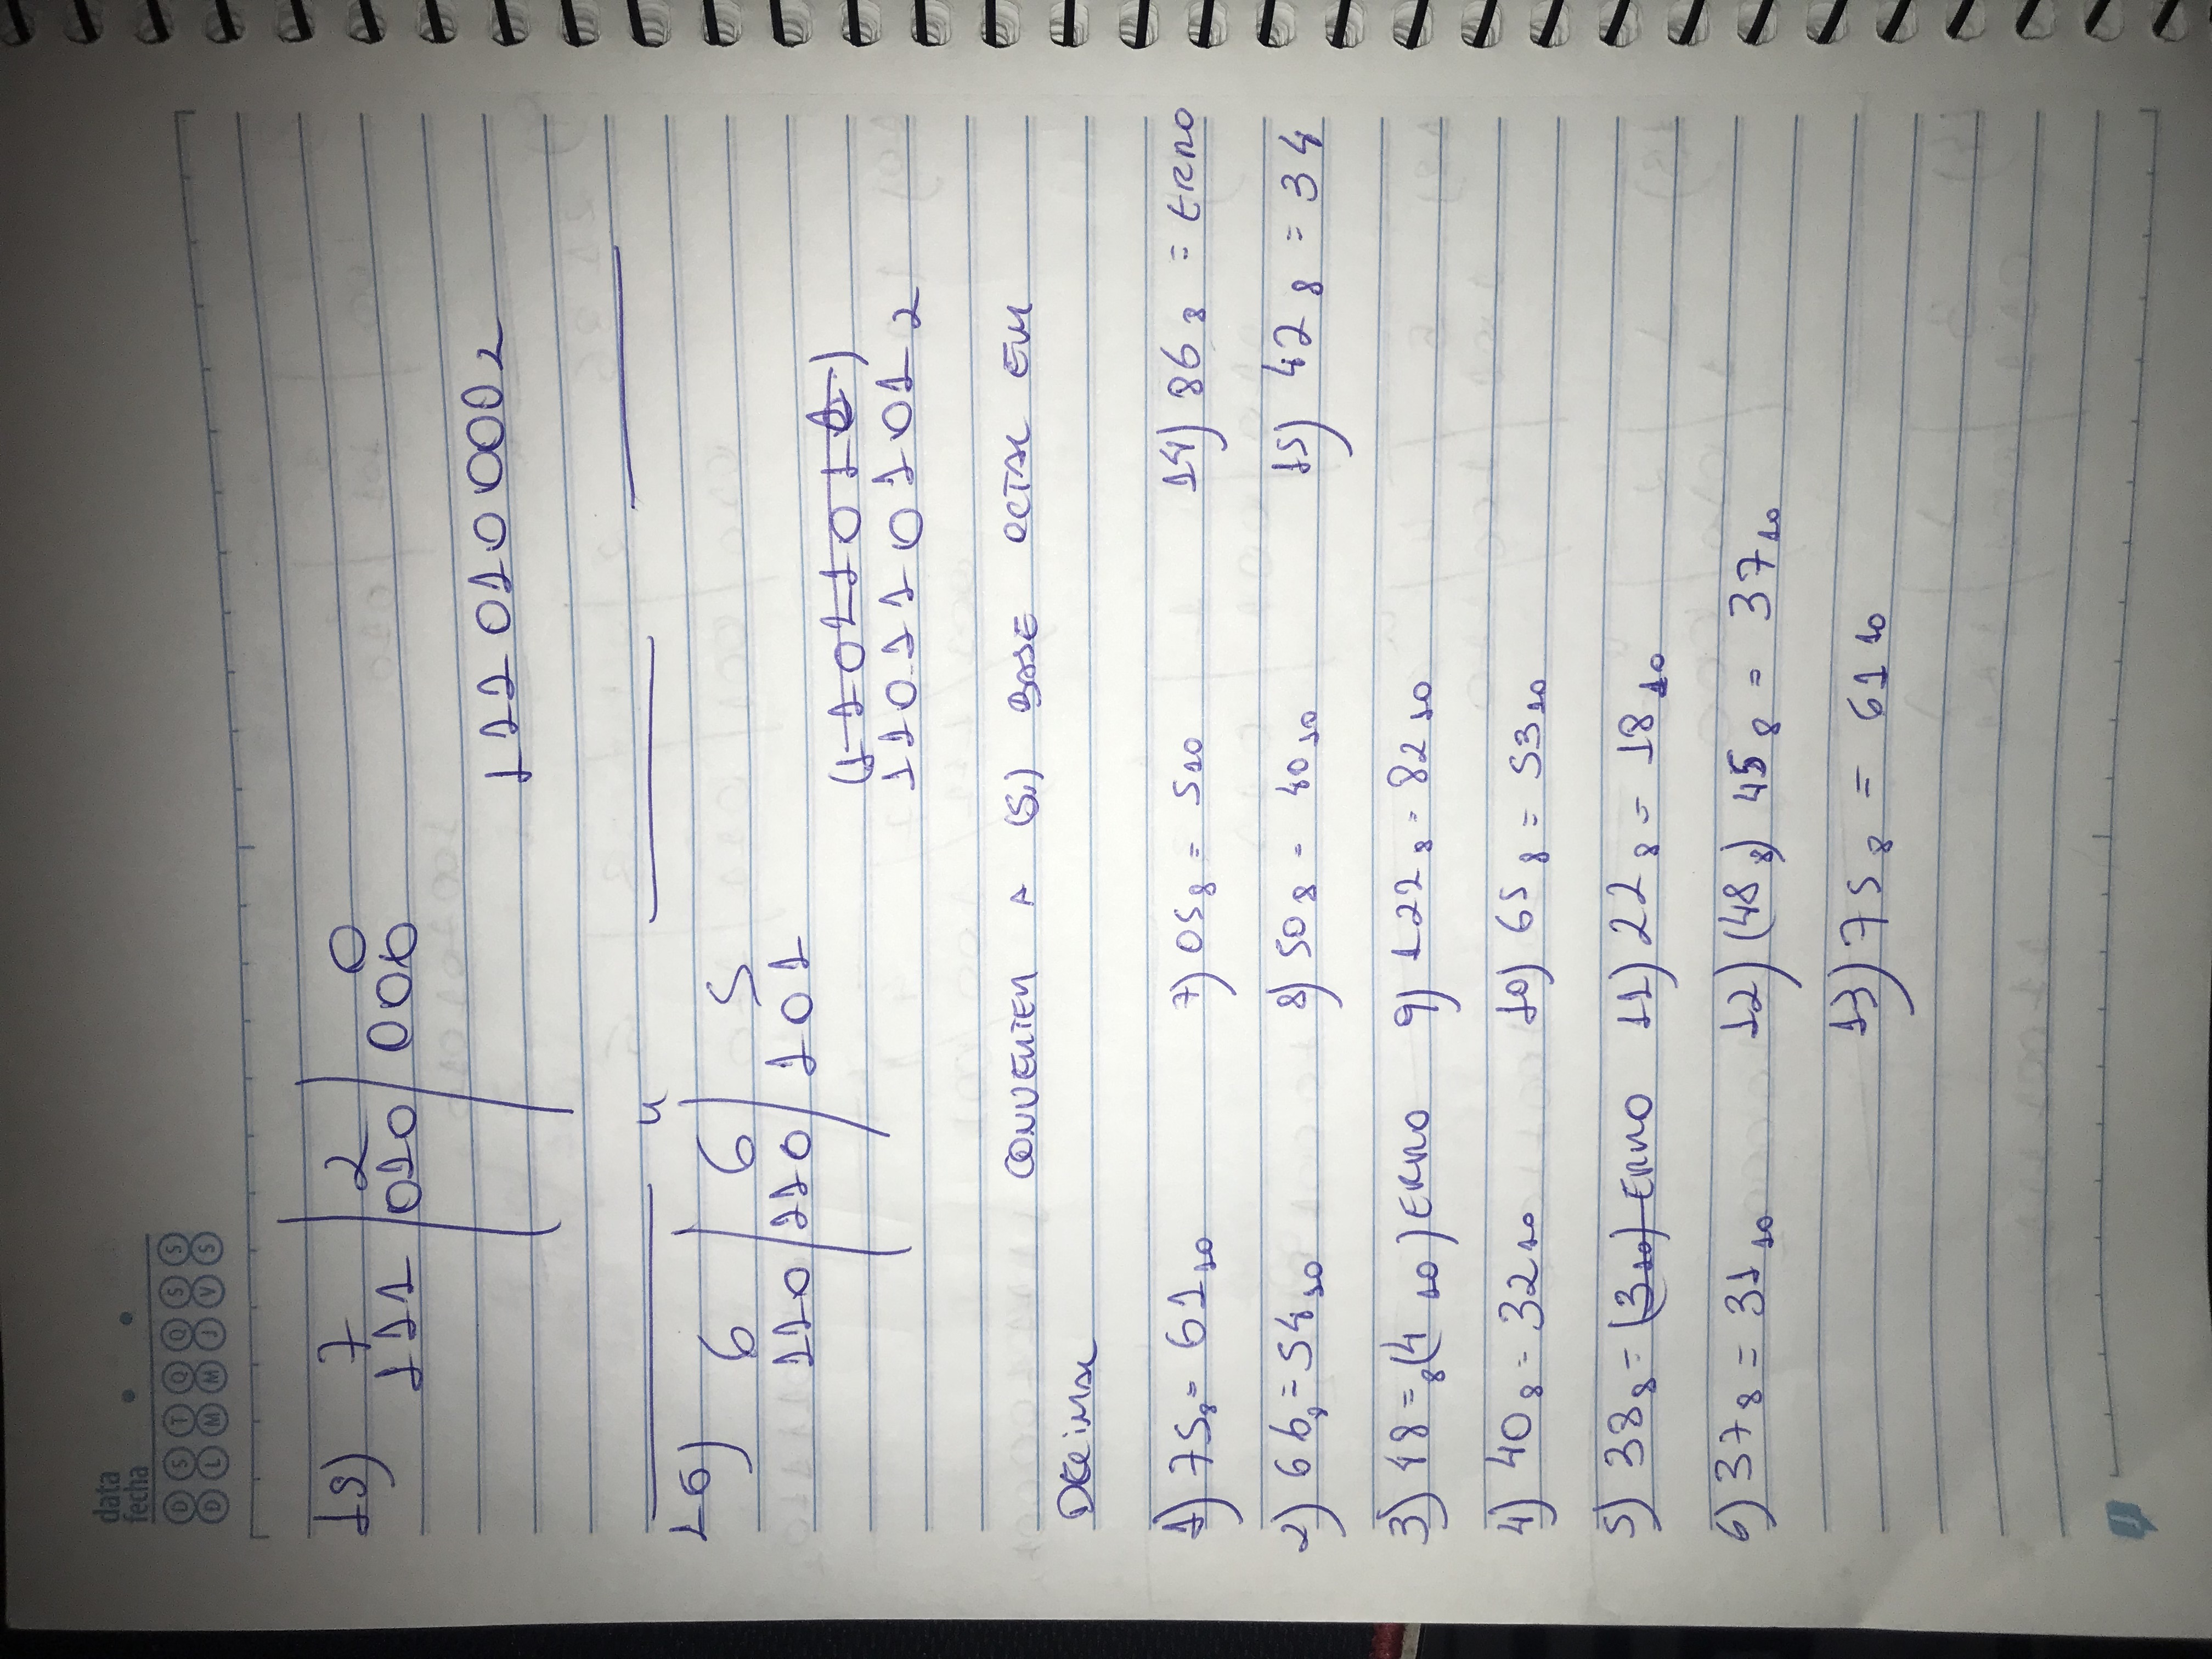 data
fecha
D S T Q Q S S
D L M M J V S
15) 7 2 0
111 010 000
111 010 000 2
16) 6 6 5
110 110 101
(11011010)
110110101 2
CONVERTER A (S.) BASE OCTAL EM
DECIMAL
1) 75 8 = 61 10
2) 66 8 = 54 10
3) 48 = 8 (4 10) ERRO
4) 40 8 = 32 10
5) 38 8 = (3 10) ERRO
6) 37 8 = 31 10
7) 05 8 = 5 10
8) 50 8 = 40 10
9) 122 8 = 82 10
10) 65 8 = 53 10
11) 22 8 = 18 10
12) (48 8) 45 8 = 37 10
13) 75 8 = 61 10
14) 86 8 = ERRO
15) 42 8 = 34